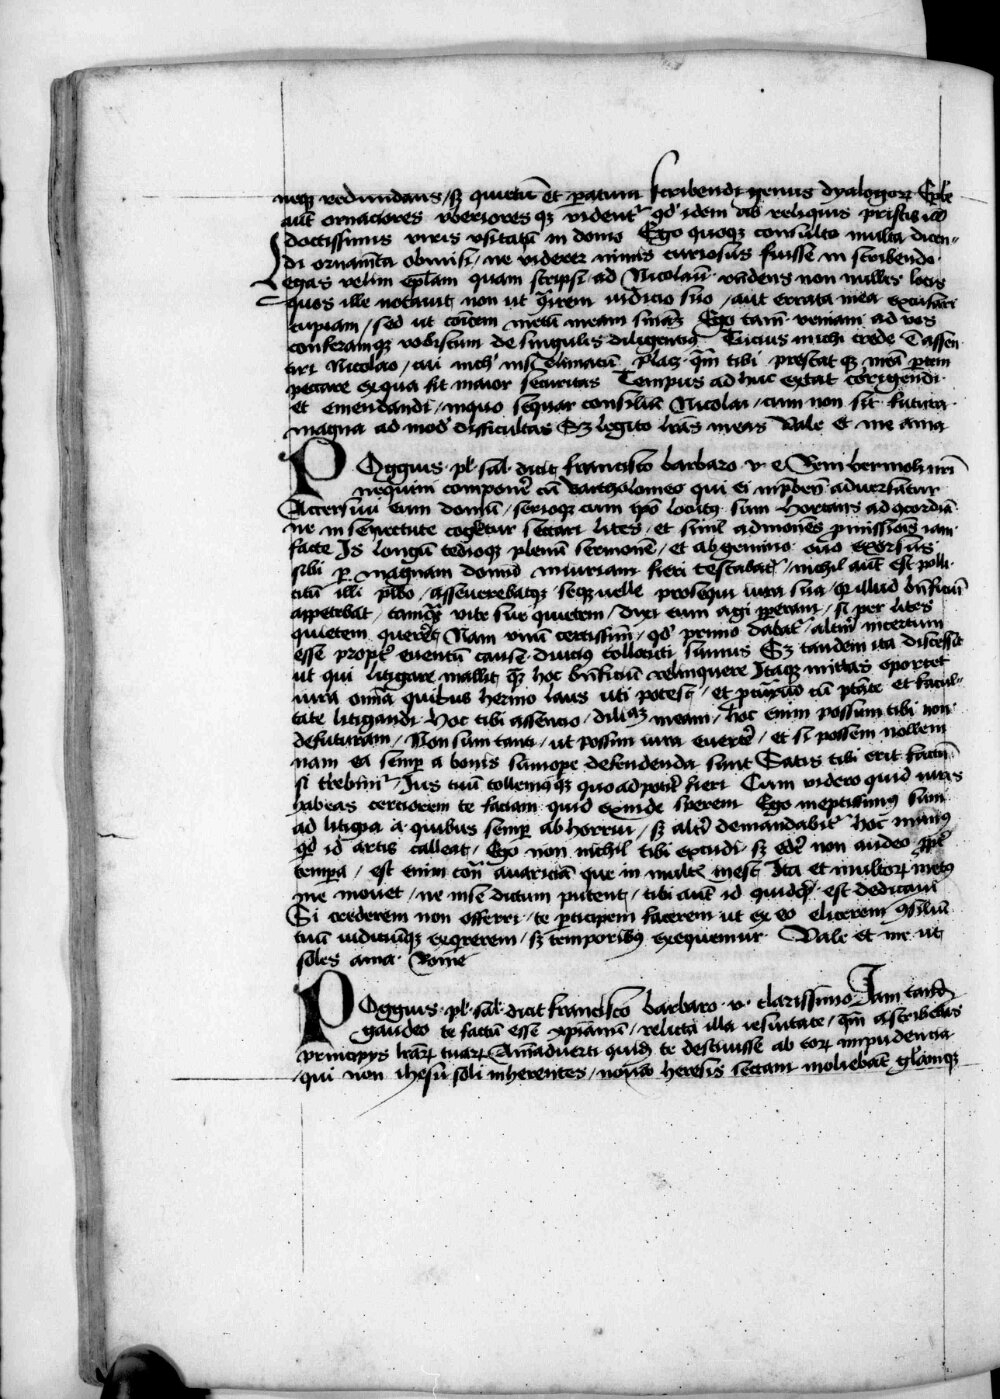 neqꝫ redundans / sꝫ quietū et ꝑatum scribendi genus dyalogoꝝ Eple
aūt ornaciores vberiores qꝫ vident᷑ qd idem ab reliquis priscis
doctissimis viris vsitatū in domo Ego quoqꝫ consulto multa dicen-
di ornam̄ta obmisi / ne viderer nimis curiosus fuisse in scribendo
Legas velim epl̄am quam scripsi ad Nicolaū respondens non nullis locis
quos ille notauit non ut q̄rerem iudicio suo / aut errata mea excusari
cupiam / sed ut cōīcem metū meam Ego tam̄ veniam ad vos
conferamqꝫ vobiscum de singulis diligentius Tucius michi crede assen
tiri Nicolao / cui nich nisi elimatū placꝫ qm̄ tibi prestat qꝫ meā ꝑtem
peccare ex qua fit maior securitas Tempus ad huc extat corrigendi
et emendandi / in quo sequar consiliū Nicolai / cum non sit futura
magna ad mod difficultas Sꝫ legito lrās meas Vale et me ama
POggius pl sal dicit francisco barbaro v e Veni hermoh nr̄i
nequiui componē cū bartholomeo qui ei aduersatur
Accersiui eum domū / serioqꝫ cum ipo locutꝫ sum hortans ad ꝯcordiā
ne in senectute cogeretur sectari lites / et siml admonēs ꝓmissiois iam
facte Is longū tedioqꝫ plenū sermonē / et ab gemino ouo exorsus
sibi ꝑ magnam domī iniuriam fieri testabat᷑ / nichil aūt est polli
citū illi / asseuerebatqꝫ seqꝫ velle prosequi iura sua / qꝫ illud bn̄ficiū
appetebat / tamqꝫ vite sue quietem / dixi eum agi ꝑperam / si per lites
quietem quereret Nam vnū certissim / qd primo dabat᷑ / altm̄ incertum
esse propt᷑ euentū cause diucius collocuti sumus Sꝫ tandem ita discessit
ut qui litigare mallit qꝫ hoc bn̄ficiū relinquere Itaqꝫ mittas oportet
iura omīa quibus hermo laus uti potest / et ꝓcuratio cū ptāte et facul-
tate litigandi Hoc tibi assencio / diligam meam / hoc enim possum tibi non
defuturam / Non sum tanti / ut possim iura euertē / et si possem nollem
nam ea semꝑ a bonis sumope defendenda sunt Satis tibi erit factū
si / Ius tuū tollemusqꝫ quo ad potīt fieri Cum videro quid iuris
habeas certiorem te faciam quid exinde sperem Ego ineptissimꝰ sum
ad litigia a quibus semꝑ abhorrui / sꝫ altī demandabit᷑ hoc munus
qd id artis calleat / Ego non nichil tibi excudi sꝫ edē non audeo ꝓpt
tempa / est enim avariciā que in multꝭ inest Ita et multoꝝ metꝰ
me mouet / ne in se dictum putent / tibi aūt id quidqd est dedicaui
Si crederem non offerri / te ꝑticipem facerem ut ex eo elicerem ꝯsiliū
tuū iudiciūqꝫ exqrerem / sꝫ temporibꝰ exequemur Vale et me ut
soles ama Rome
POggius pl sal dicit francisco barbaro v clarissimo Iam tand̄
gaudeo te factū esse xp̄ianū / relicta illa iesuitate / qm̄ ascribebas
principijs lrāꝝ tuaꝝ Aīaduerti quid te desciuisse ab eoꝝ impudencia
qui non ihesū soli inherentes / nouā heresis sectam moliebāt᷑ gl̄iamqꝫ